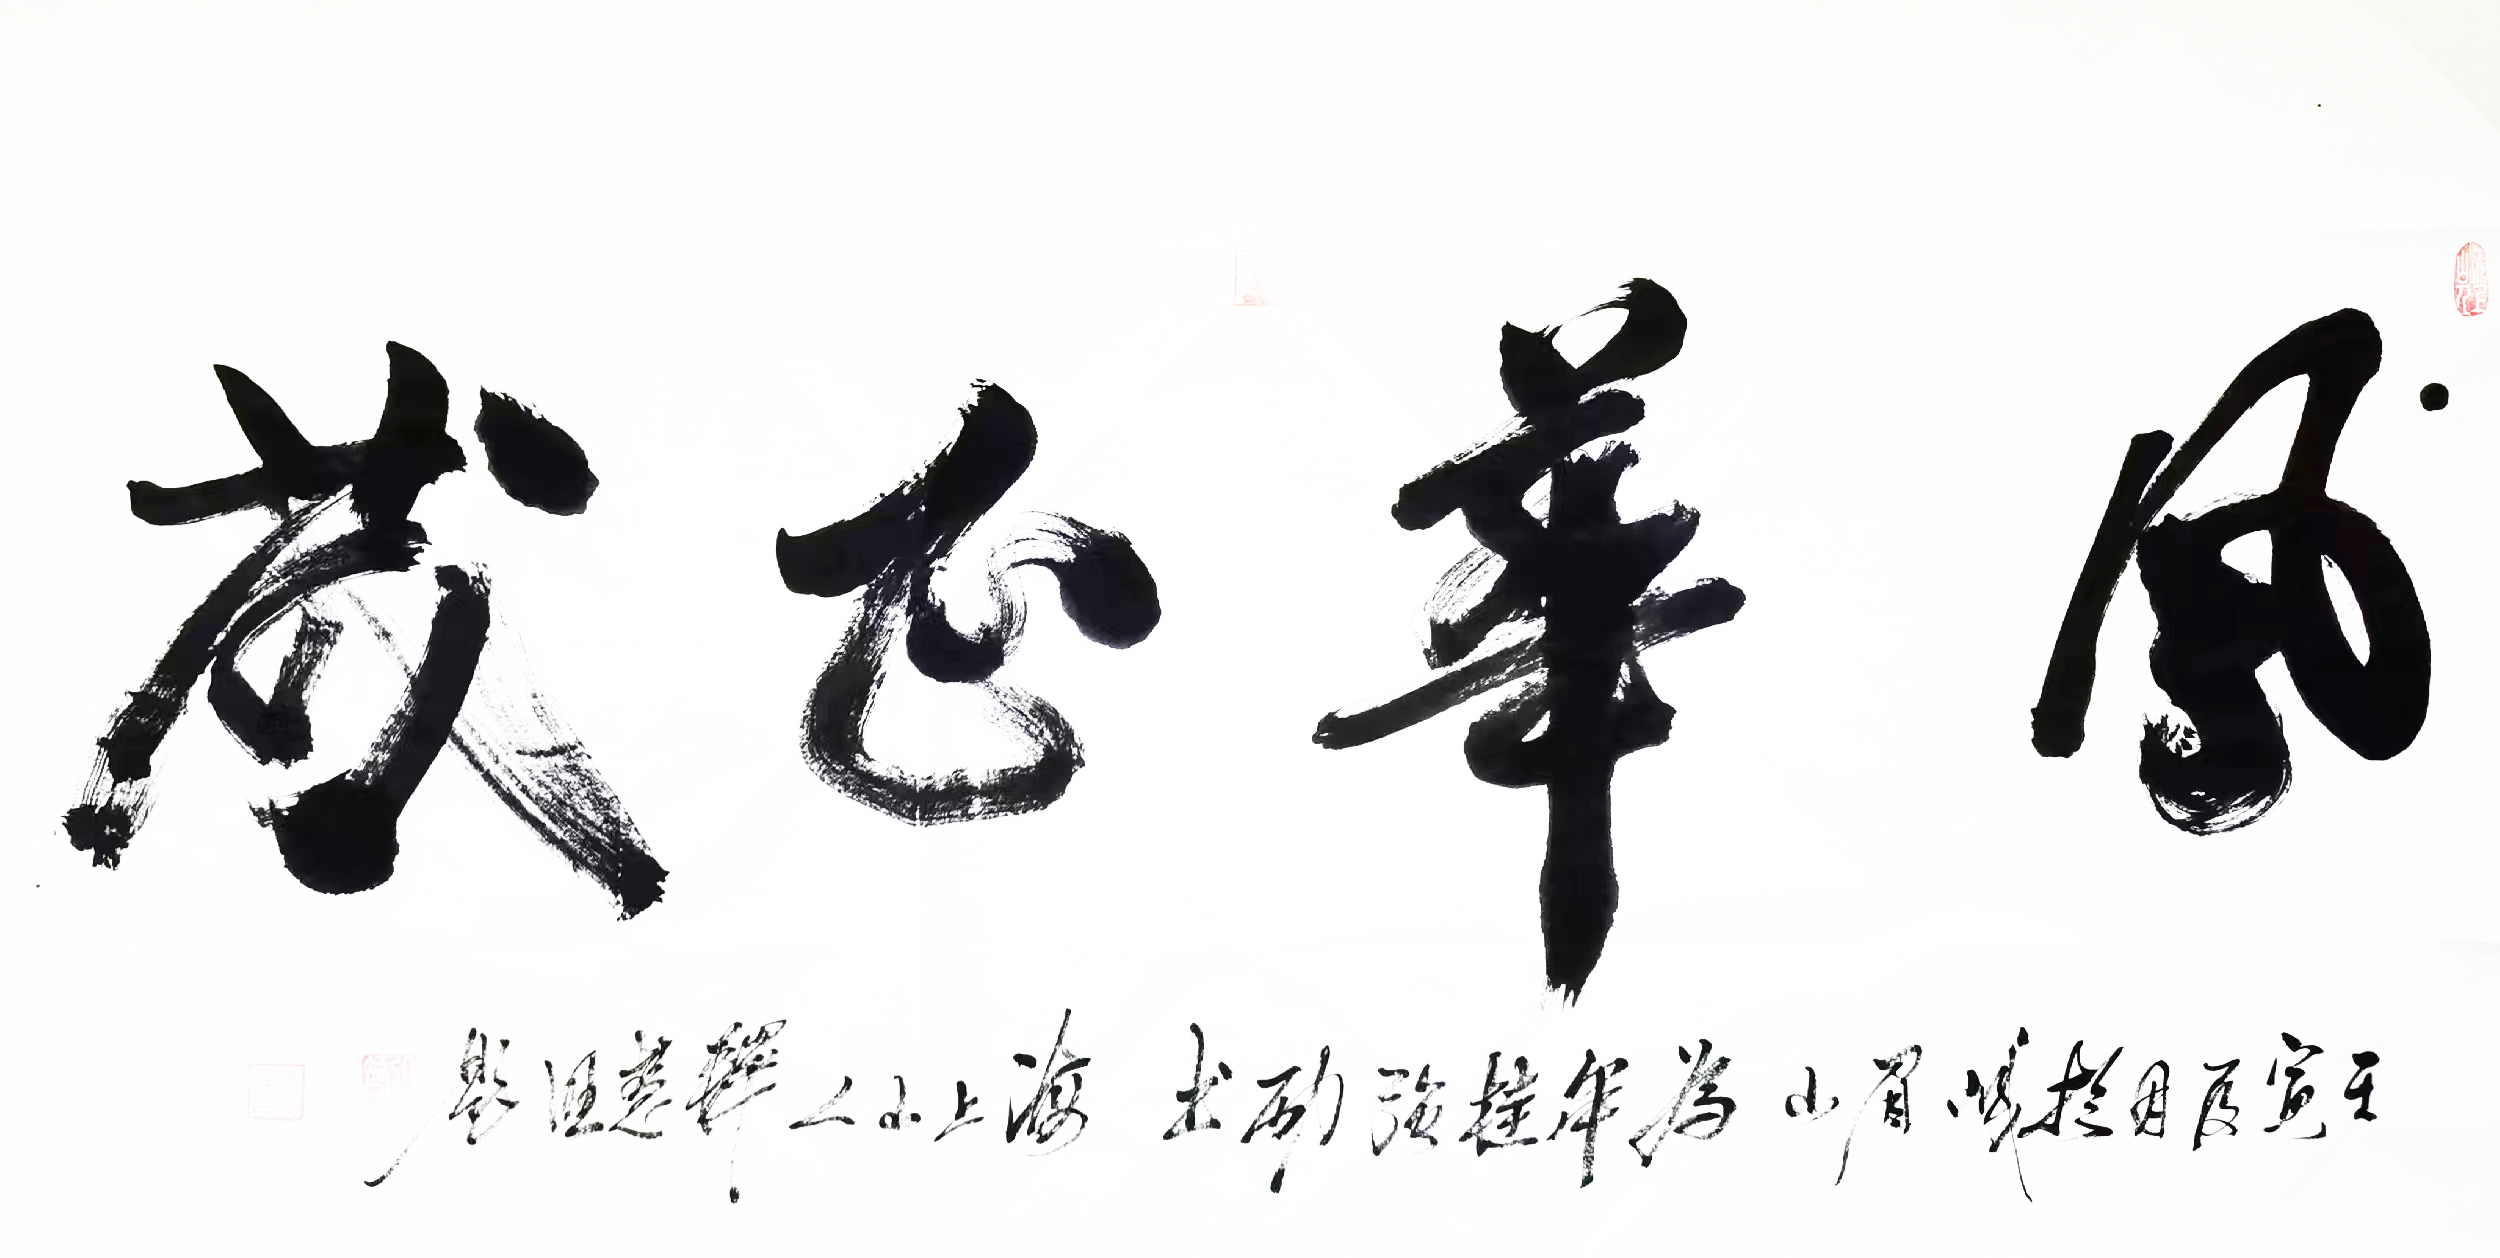 風華正茂
壬寅夏月於峨眉山 為年桂強 書 海上小人 輝 題